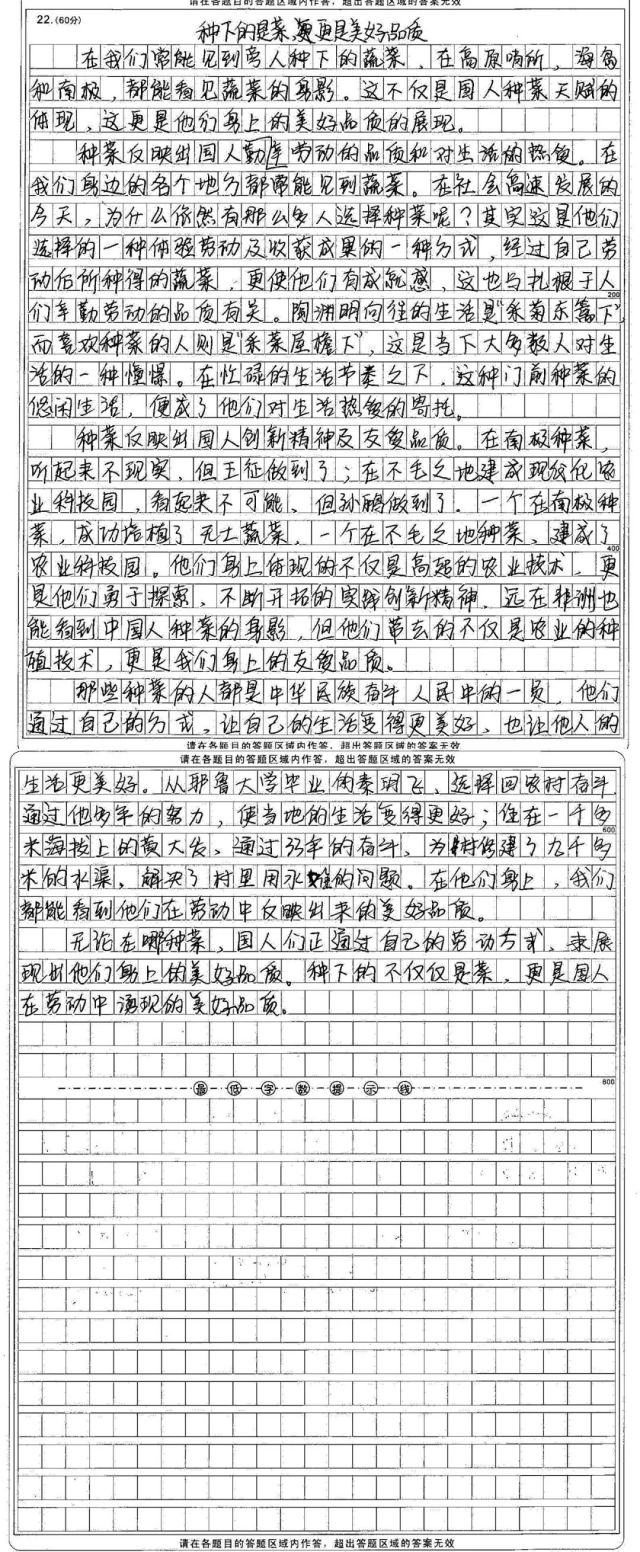 请在各题目的答题区域内作答，超出答题区域的答案无效
22.(60分)
种下的是菜,更是美好品质
在我们常能见到旁人种下的蔬菜，在高原哨所，海岛
和南极，都能看见蔬菜的身影。这不仅是国人种菜天赋的
体现，这更是他们身上的美好品质的展现。
种菜反映出国人勤劳动的品质和对生活的热爱。在
我们身边的各个地方都常能见到蔬菜。在社会高速发展的
今天，为什么依然有那么多人选择种菜呢？其实这是他们
选择的一种体验劳动及收获成果的一种方式，经过自己劳
动后所种得的蔬菜，更使他们有成就感，这也与扎根于人
200
们辛勤劳动的品质有关。陶渊明向往的生活是“采菊东篱下”，
而喜欢种菜的人则是“采菜屋檐下”，这是当下大多数人对生
活的一种憧憬。在忙碌的生活节奏之下，这种门前种菜的
悠闲生活，便成了他们对生活热爱的寄托。
种菜反映出国人创新精神及友爱品质。在南极种菜，
听起来不现实，但王征做到了；在不毛之地建成现代化农
业科技园，看起来不可能，但孙鹏做到了。一个在南极种
菜，成功培植了无土蔬菜，一个在不毛之地种菜，建成了
400
农业科技园。他们身上体现的不仅是高超的农业技术，更
是他们勇于探索，不断开拓的实践创新精神，远在非洲也
能看到中国人种菜的身影，但他们带去的不仅是农业的种
殖技术，更是我们身上的友爱品质。
那些种菜的人都是中华民族奋斗人民中的一员，他们
通过自己的方式，让自己的生活变得更美好，也让他人的
请在各题目的答题区域内作答，超出答题区域的答案无效
请在各题目的答题区域内作答，超出答题区域的答案无效
生活更美好。从耶鲁大学毕业的秦玥飞，选择回农村奋斗
通过他多年的努力，使当地的生活变得更好；住在一千多
600
米海拔上的黄大发，通过33年的奋斗，为村修建了九千多
米的水渠，解决了村里用水难的问题。在他们身上，我们
都能看到他们在劳动中反映出来的美好品质。
无论在哪种菜，国人们正通过自己的劳动方式，来展
现出他们身上的美好品质。种下的不仅仅是菜，更是国人
在劳动中涌现的美好品质。
800
最低字数提示线
请在各题目的答题区域内作答，超出答题区域的答案无效